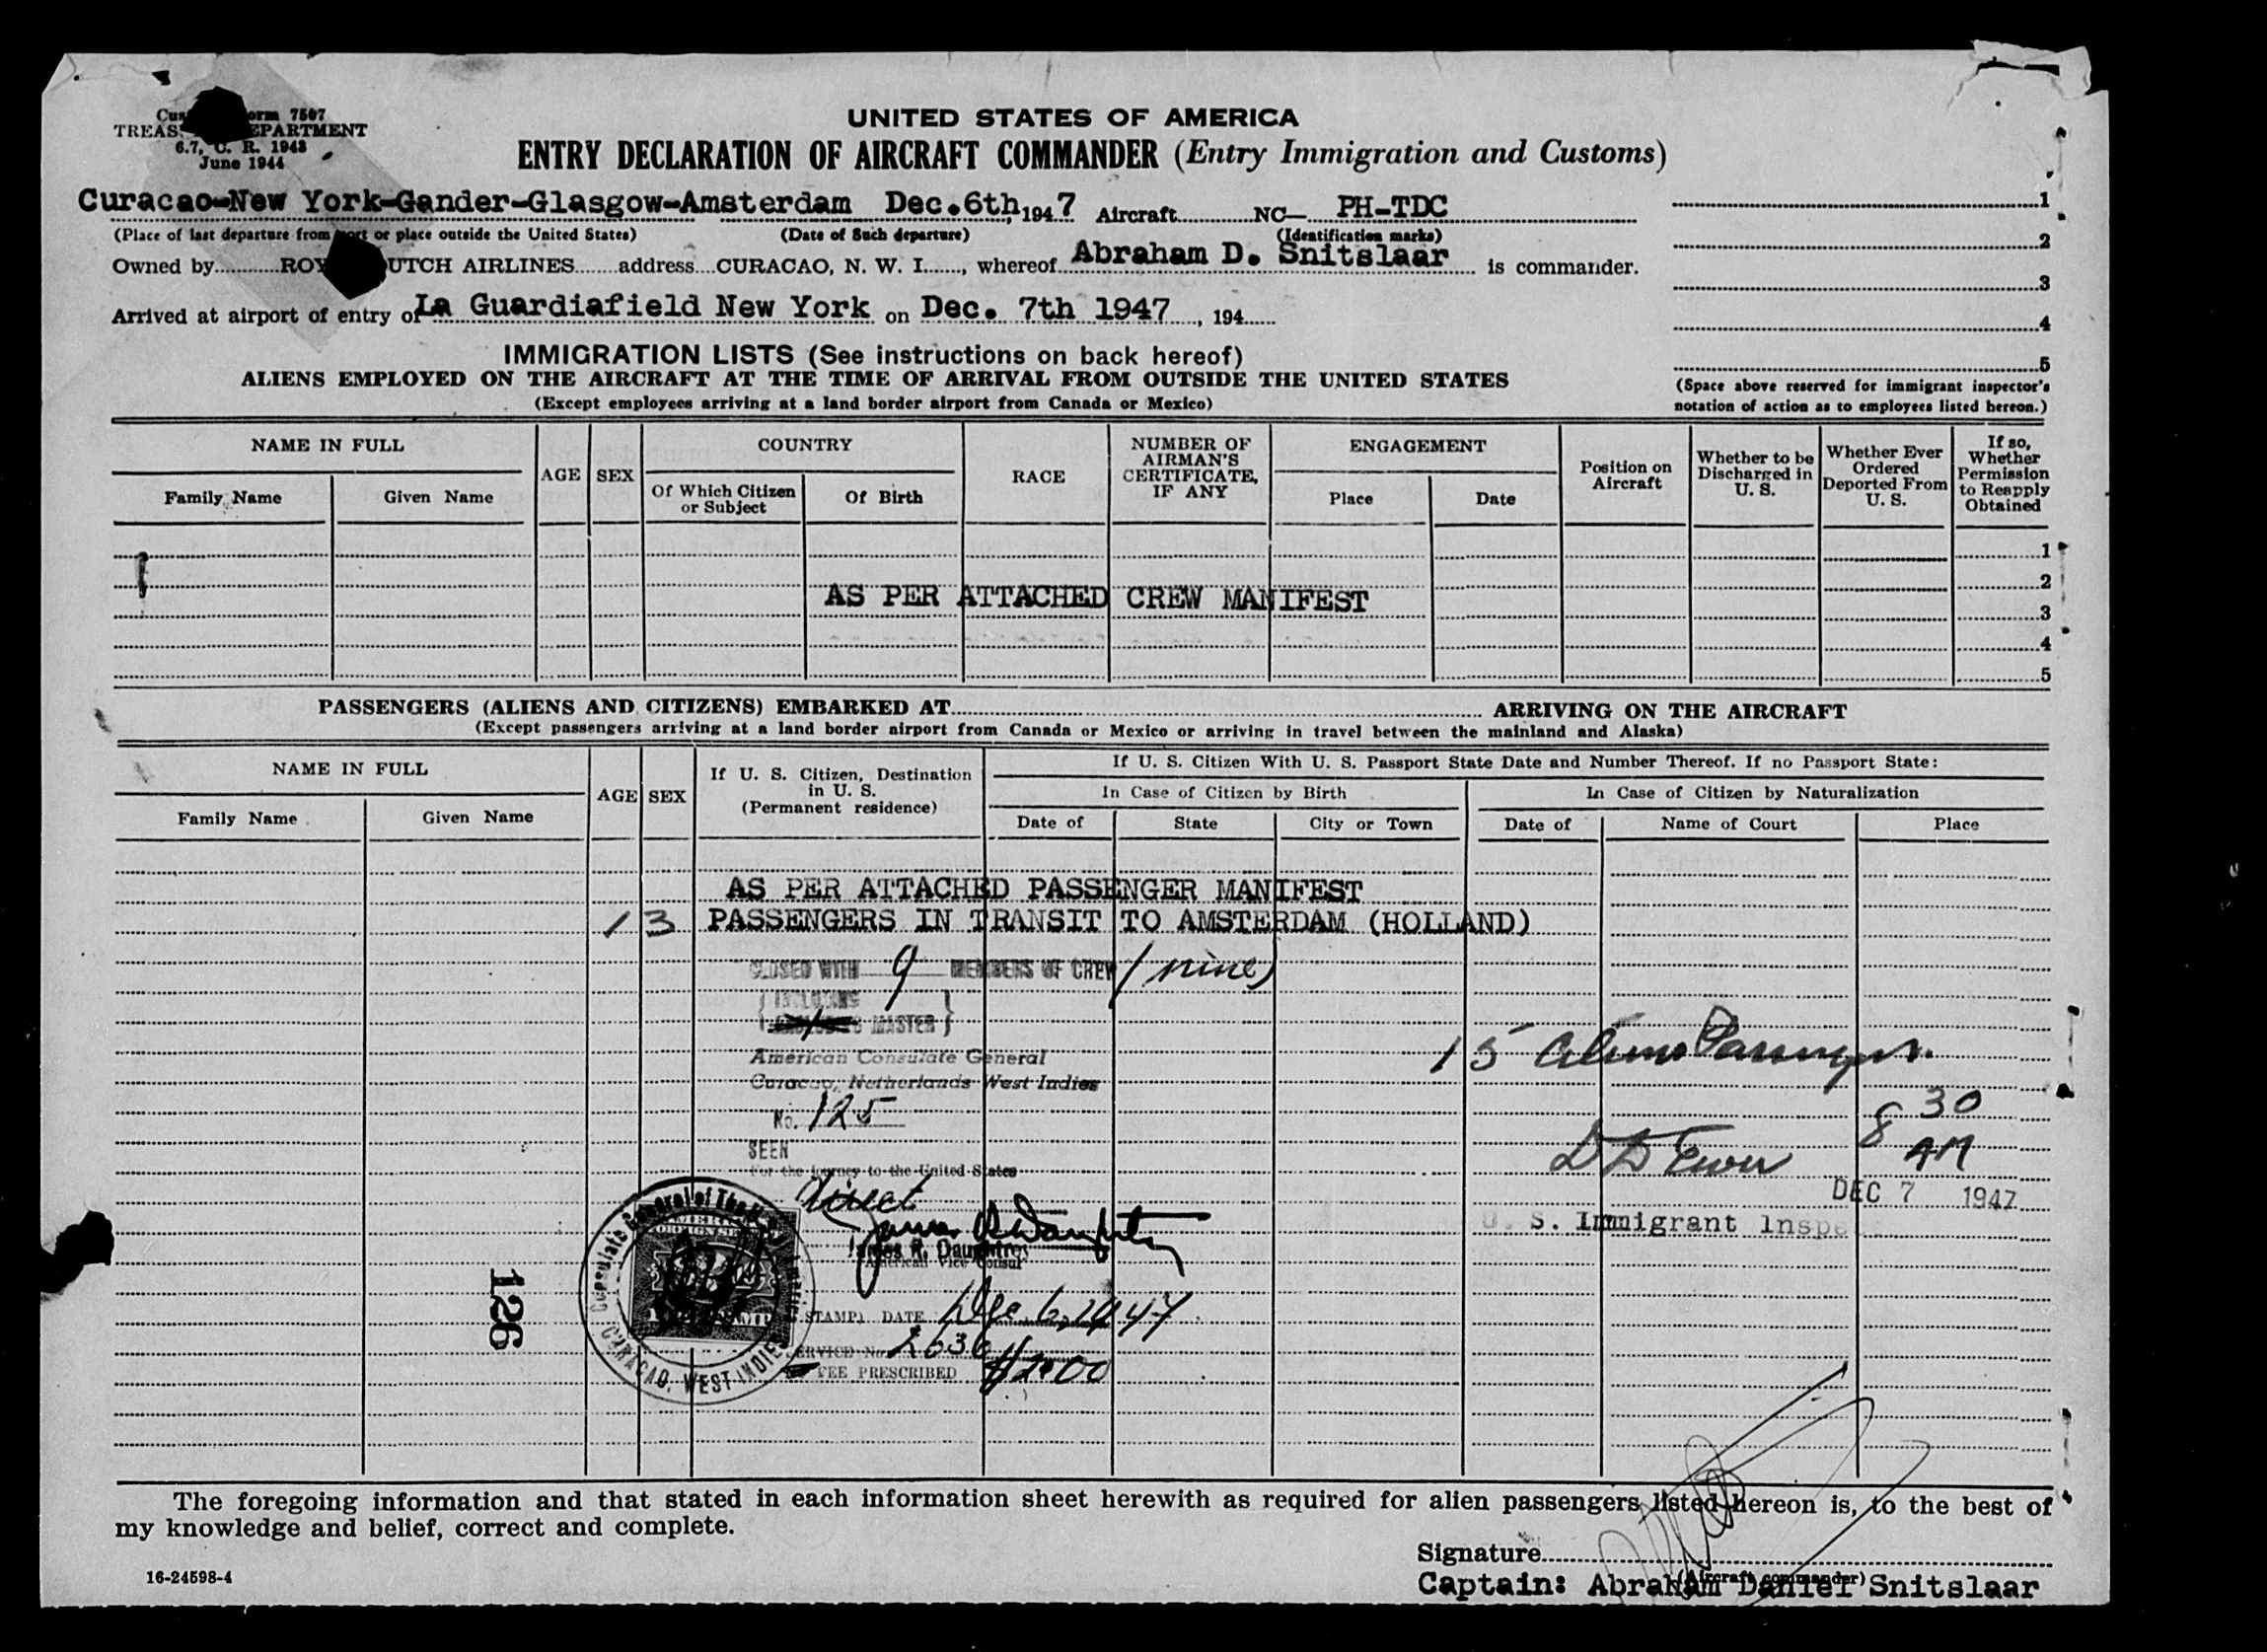 Form 7507
UNITED STATES OF AMERICA
TREAS DEPARTMENT
6.7, C. R. 1943
June 1944
ENTRY DECLARATION OF AIRCRAFT COMMANDER (Entry Immigration and Customs)
Curacao-New York-Gander-Glasgow-Amsterdam Dec.6th, 1947 Aircraft NC— PH-TDC 1
(Place of last departure from port or place outside the United States) (Date of Such departure) (Identification marks)
2
Owned by ROY DUTCH AIRLINES address CURACAO, N. W. I., whereof Abraham D. Snitslaar is commander.
3
Arrived at airport of entry of La Guardiafield New York on Dec. 7th 1947, 194
4
IMMIGRATION LISTS (See instructions on back hereof)
5
ALIENS EMPLOYED ON THE AIRCRAFT AT THE TIME OF ARRIVAL FROM OUTSIDE THE UNITED STATES
(Except employees arriving at a land border airport from Canada or Mexico)
(Space above reserved for immigrant inspector's
notation of action as to employees listed hereon.)
NAME IN FULL
Family Name
Given Name
AGE
SEX
COUNTRY
Of Which Citizen
or Subject
Of Birth
RACE
NUMBER OF
AIRMAN'S
CERTIFICATE,
IF ANY
ENGAGEMENT
Place
Date
Position on
Aircraft
Whether to be
Discharged in
U. S.
Whether Ever
Ordered
Deported From
U. S.
If so,
Whether
Permission
to Reapply
Obtained
1
2
AS PER ATTACHED CREW MANIFEST
3
4
5
PASSENGERS (ALIENS AND CITIZENS) EMBARKED AT ARRIVING ON THE AIRCRAFT
(Except passengers arriving at a land border airport from Canada or Mexico or arriving in travel between the mainland and Alaska)
NAME IN FULL
Family Name
Given Name
AGE
SEX
If U. S. Citizen, Destination
in U. S.
(Permanent residence)
If U. S. Citizen With U. S. Passport State Date and Number Thereof. If no Passport State:
In Case of Citizen by Birth
In Case of Citizen by Naturalization
Date of
State
City or Town
Date of
Name of Court
Place
AS PER ATTACHED PASSENGER MANIFEST
13 PASSENGERS IN TRANSIT TO AMSTERDAM (HOLLAND)
CLOSED WITH 9 MEMBERS OF CREW (nine)
INCLUDING
MASTER
American Consulate General
Curacao, Netherlands West Indies
15 Aliens Passengers.
No. 125
8 30
AM
SEEN
For the journey to the United States
Direct
DEC 7 1947
U. S. Immigrant Inspe
James R. Daughtrey
American Vice Consul
Consulate General of The
CURACAO, WEST INDIES
126
STAMP) DATE Dec 6, 1947
SERVICE No. 2636
FEE PRESCRIBED $2.00
The foregoing information and that stated in each information sheet herewith as required for alien passengers listed hereon is, to the best of
my knowledge and belief, correct and complete.
Signature
(Aircraft commander)
Captain: Abraham Daniel Snitslaar
16-24598-4